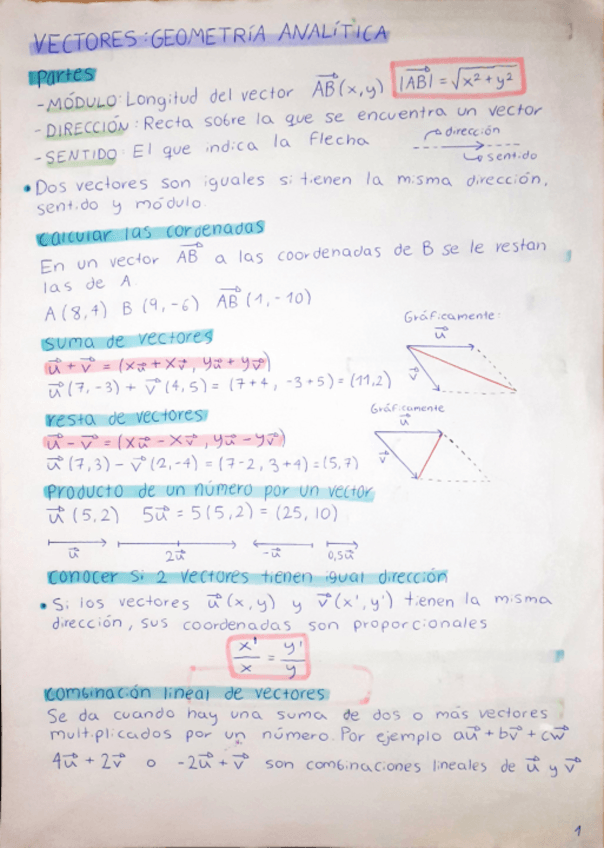 VECTORES: GEOMETRÍA ANALÍTICA
Partes
- MÓDULO: Longitud del vector AB⃗ (x,y) |AB⃗| = √x² + y²
- DIRECCIÓN: Recta sobre la que se encuentra un vector
- SENTIDO: El que indica la flecha
dirección
sentido
• Dos vectores son iguales si tienen la misma dirección,
sentido y módulo.
Calcular las cordenadas
En un vector AB⃗ a las coordenadas de B se le restan
las de A.
A (8,4) B (9,-6) AB⃗ (1,-10)
Suma de vectores
u⃗ + v⃗ = (xu⃗ + xv⃗, yu⃗ + yv⃗)
u⃗ (7,-3) + v⃗ (4,5) = (7+4, -3+5) = (11,2)
Gráficamente:
u⃗
v⃗
resta de vectores
u⃗ - v⃗ = (xu⃗ - xv⃗, yu⃗ - yv⃗)
u⃗ (7,3) - v⃗ (2,-4) = (7-2, 3+4) = (5,7)
Gráficamente
u⃗
v⃗
Producto de un número por un vector
u⃗ (5,2) 5u⃗ = 5(5,2) = (25,10)
u⃗ 2u⃗ -u⃗ 0,5u⃗
Conocer si 2 vectores tienen igual dirección
• Si los vectores u⃗ (x,y) y v⃗ (x',y') tienen la misma
dirección, sus coordenadas son proporcionales
x'/x = y'/y
Combinación lineal de vectores
Se da cuando hay una suma de dos o más vectores
multiplicados por un número. Por ejemplo au⃗ + bv⃗ + cw⃗
4u⃗ + 2v⃗ o -2u⃗ + v⃗ son combinaciones lineales de u⃗ y v⃗
1